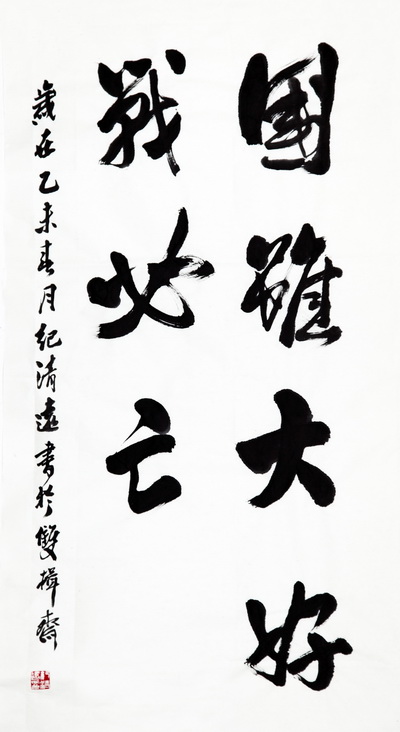 國雖大好
戰必亡
歲在乙未春月紀清遠書於雙揖齋